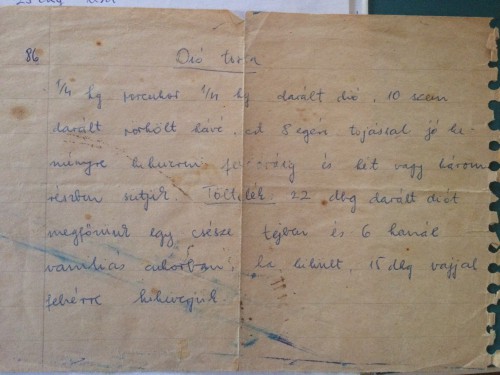 86
Dió torta
1/4 kg porcukor 1/4 kg darált dió, 10 szem
darált pörkölt kávé, 8 egész tojással jó ke-
ményre kikeverni és két vagy három
részben sütjük Töltelék 22 dkg darált diót
megfőzünk egy csésze tejben és 6 kanál
vaniliás cukorban, ha kihűlt, 15 dkg vajjal
fehérre kikeverjük